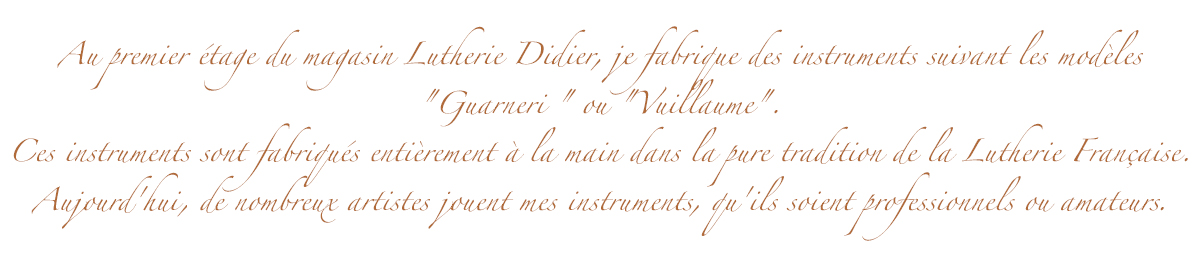 Au premier étage du magasin Lutherie Didier, je fabrique des instruments suivant les modèles
"Guarneri " ou "Vuillaume".
Ces instruments sont fabriqués entièrement à la main dans la pure tradition de la Lutherie Française.
Aujourd'hui, de nombreux artistes jouent mes instruments, qu'ils soient professionnels ou amateurs.